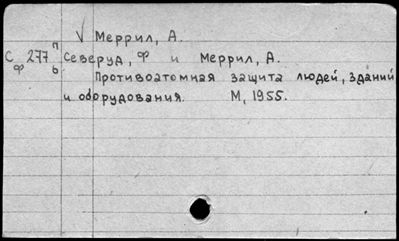 √ Меррил, А.
С 277 п
ф б
Северуд, Ф и Меррил, А.
Противоатомная защита людей, зданий
и оборудования. М, 1955.